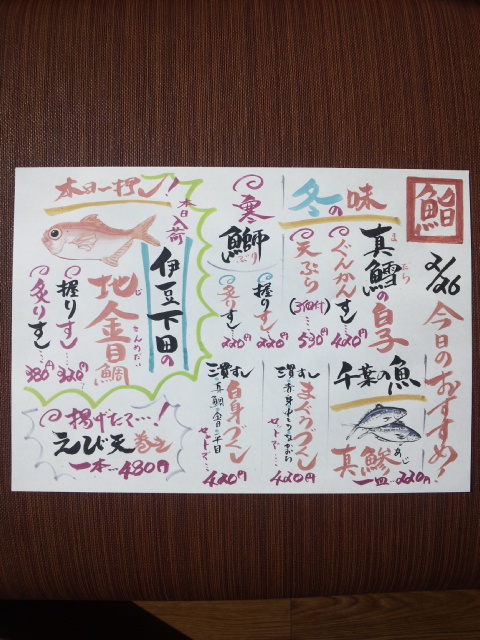 鮨
2/26
今日のおすすめ!
冬の味
真鱈の白子
まだら
ぐんかんすし…420円
天ぷら(3個付)…530円
寒鰤
ぶり
握りすし…220円
炙りすし…220円
本日一押し!
本日入荷
伊豆下田の
地金目鯛
じきんめだい
握りすし…320円
炙りすし…380円
千葉の魚
真鯵
あじ
一皿…220円
三貫すし
まぐろづくし
セットで…420円
三貫すし
白身づくし
真鯛・金目・平目
セットで…420円
揚げたて…!
えび天巻き
一本…480円